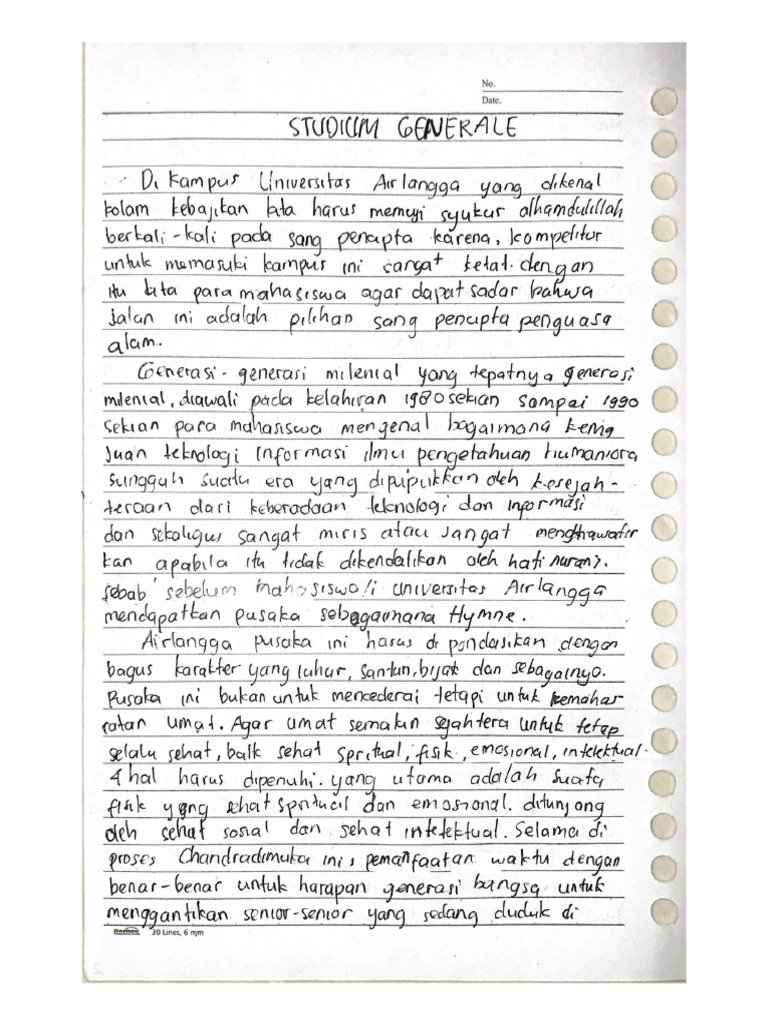 No.
Date.
STUDIUM GENERALE
Di Kampus Universitas Airlangga yang dikenal
kolam kebajikan kita harus memuji syukur alhamdulillah
berkali-kali pada sang pencipta karena, kompetitor
untuk memasuki kampus ini sangat ketat. dengan
itu kita para mahasiswa agar dapat sadar bahwa
jalan ini adalah pilihan sang pencipta penguasa
alam.
Generasi-generasi milenial yang tepatnya generasi
milenial, diawali pada kelahiran 1980 sekian sampai 1990
sekian para mahasiswa mengenal bagaimana kema
juan teknologi informasi ilmu pengetahuan humaniora
sungguh suatu era yang dipupukkan oleh kesejah-
teraan dari keberadaan teknologi dan informasi
dan sekaligus sangat miris atau sangat mengkhawatir
kan apabila itu tidak dikendalikan oleh hati nurani.
sebab sebelum mahasiswa/i universitas Airlangga
mendapatkan pusaka sebagaimana Hymne.
Airlangga pusaka ini harus di pondasikan dengan
bagus karakter yang luhur, santun, bijak dan sebagainya.
Pusaka ini bukan untuk mencederai tetapi untuk kemahas
ratan umat. Agar umat semakin sejahtera untuk tetap
selalu sehat, baik sehat spritual, fisik, emosional, intelektual.
4 hal harus dipenuhi. yang utama adalah suatu
fisik yang sehat spritual dan emosional. ditunjang
oleh sehat sosial dan sehat intelektual. Selama di
proses Chandradimuka ini, pemanfaatan waktu dengan
benar-benar untuk harapan generasi bangsa untuk
menggantikan senior-senior yang sedang duduk di
30 Lines, 6 mm